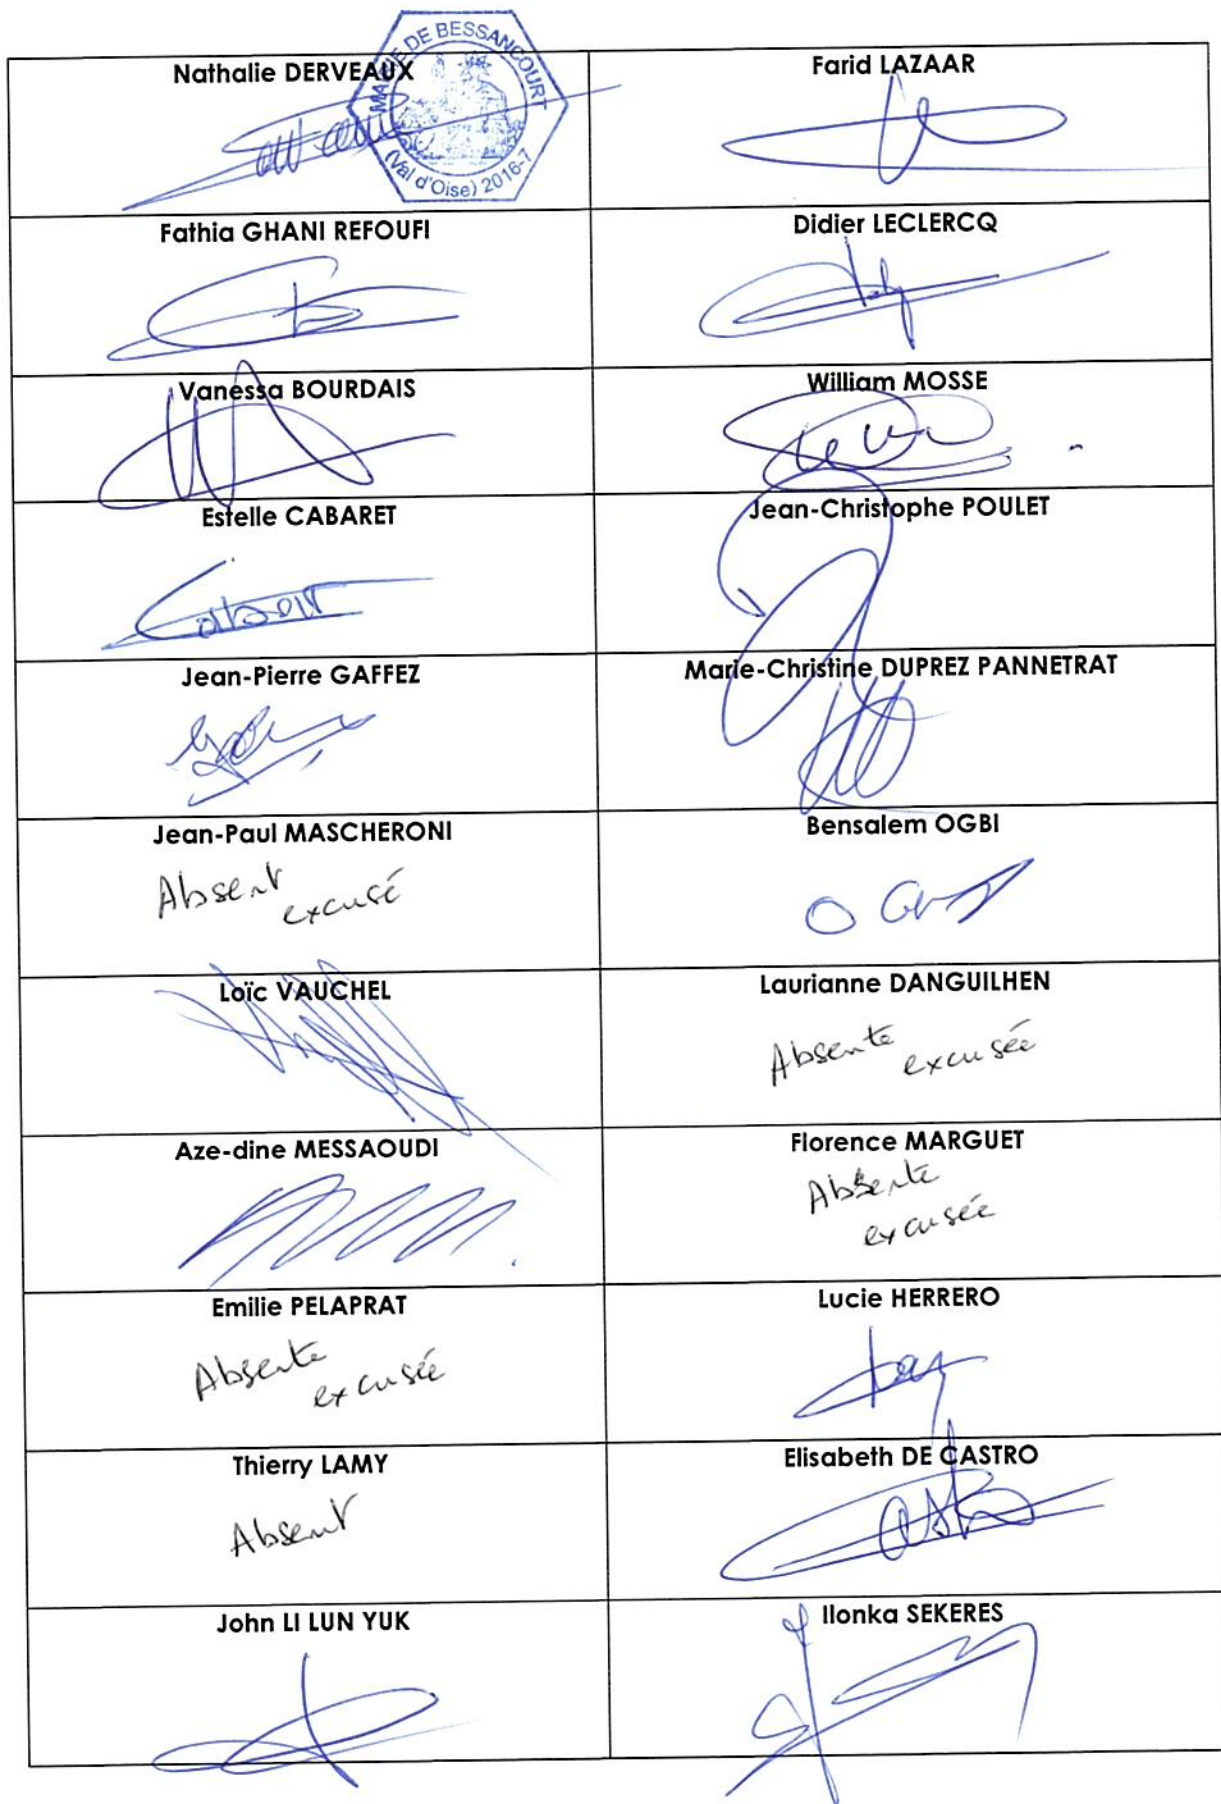 MAIRIE DE BESSANCOURT
(Val d'Oise) 2016-7
Nathalie DERVEAUX
Farid LAZAAR
Fathia GHANI REFOUFI
Didier LECLERCQ
Vanessa BOURDAIS
William MOSSE
Estelle CABARET
Jean-Christophe POULET
Jean-Pierre GAFFEZ
Marie-Christine DUPREZ PANNETRAT
Jean-Paul MASCHERONI
Absent
excusé
Bensalem OGBI
Loïc VAUCHEL
Laurianne DANGUILHEN
Absente
excusée
Aze-dine MESSAOUDI
Florence MARGUET
Absente
excusée
Emilie PELAPRAT
Absente
excusée
Lucie HERRERO
Thierry LAMY
Absent
Elisabeth DE CASTRO
John LI LUN YUK
Ilonka SEKERES